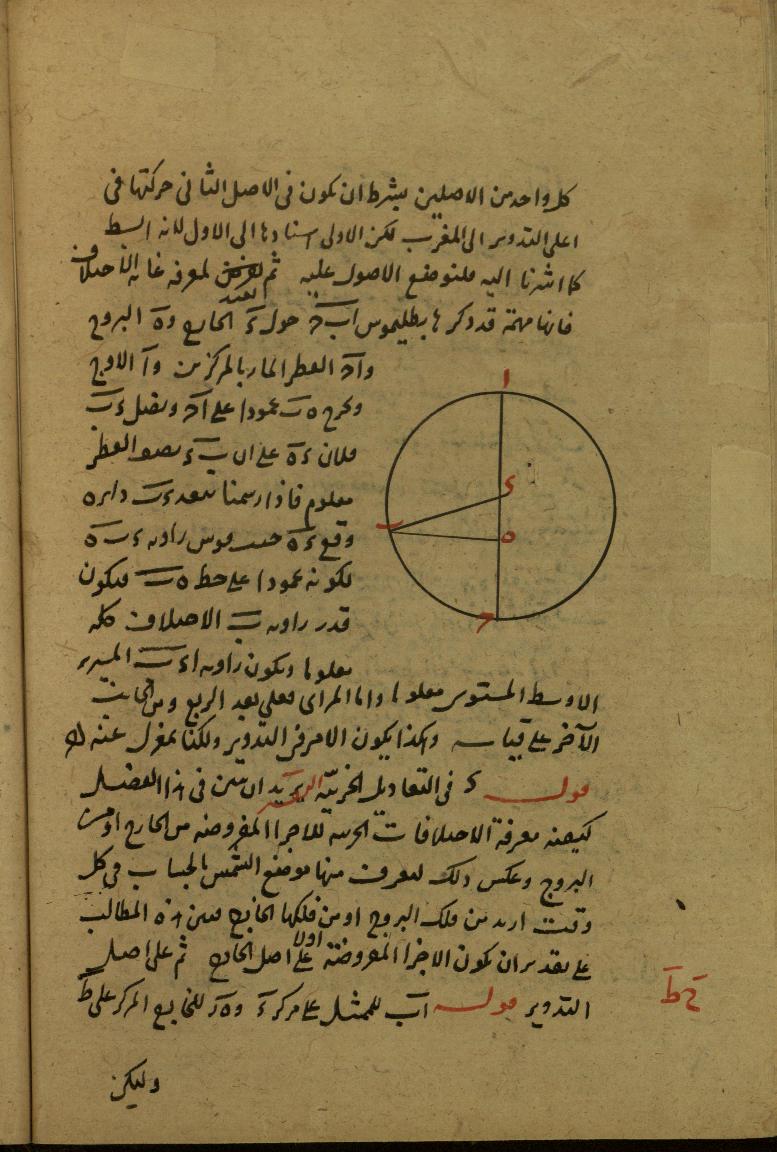 كل واحد من الاصلين بشرط ان يكون فى الاصل الثانى حركتها فى
اعلى التدوير الى المغرب لكن الاولى اسنادها الى الاول لانه ابسط
كما اشرنا اليه فلنوضع الاصول عليه ثم لمعرفة غاية الاختلاف
فانها مهمة قد ذكرها بطليموس اب حول الخارج البروج
القطر المار بالمركزين الاوج
ونخرج عمودا على ونصل
فلان على ان نصف القطر
معلوم فاذا رسمنا ببعد دايرة
وقع قوس زاوية
لكونه عمودا على خط فيكون
قدر زاوية الاختلاف كله
معلوما ويكون زاوية المسير
الاوسط المستوى معلوما واما المرائى فعلى بعد الربع ومن الجانب
الآخر على قياسه وهكذا يكون الامر فى التدوير ولكنا بمعزل عنه
قوله فى التعاديل الجزئية يريد ان يبين فى هذا الفصل
كيفية معرفة الاختلافات الجزئية للاجزا المفروضة من الخارج او من
البروج وعكس ذلك لتعرف منها موضع الشمس بالحساب فى كل
وقت اريد من فلك البروج او من فلكها الخارج فبين هذه المطالب
على تقدير ان يكون الاجزا المفروضة اولا على اصل الخارج ثم على اصل
التدوير قوله اب للممثل على مركز للخارج المركز على ط
وليكن
ا
ء
ب
ه
ح